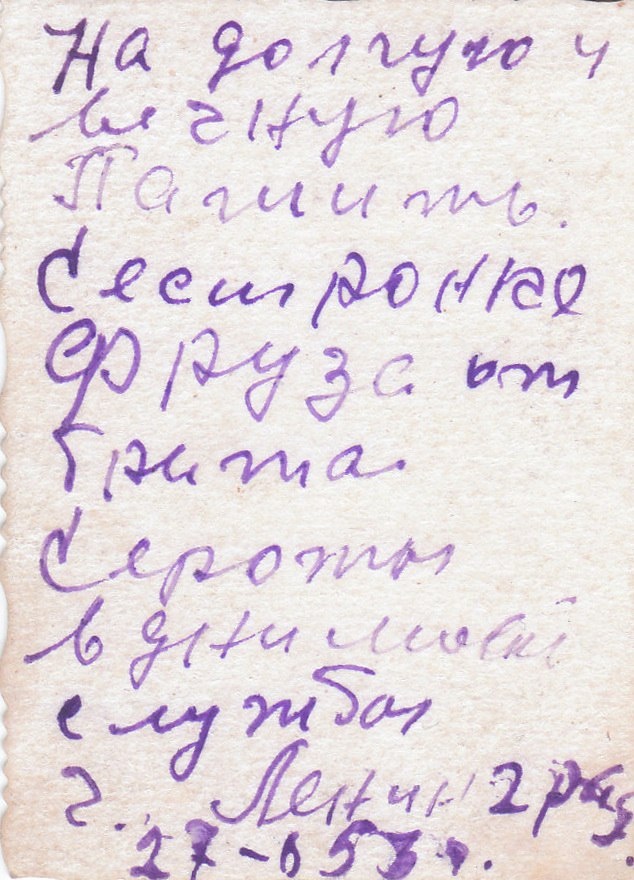 На долгую и
вечную
Память.
Сестронке
Фруза от
брата.
Сероты
в дни моей
службы
г. Ленинград.